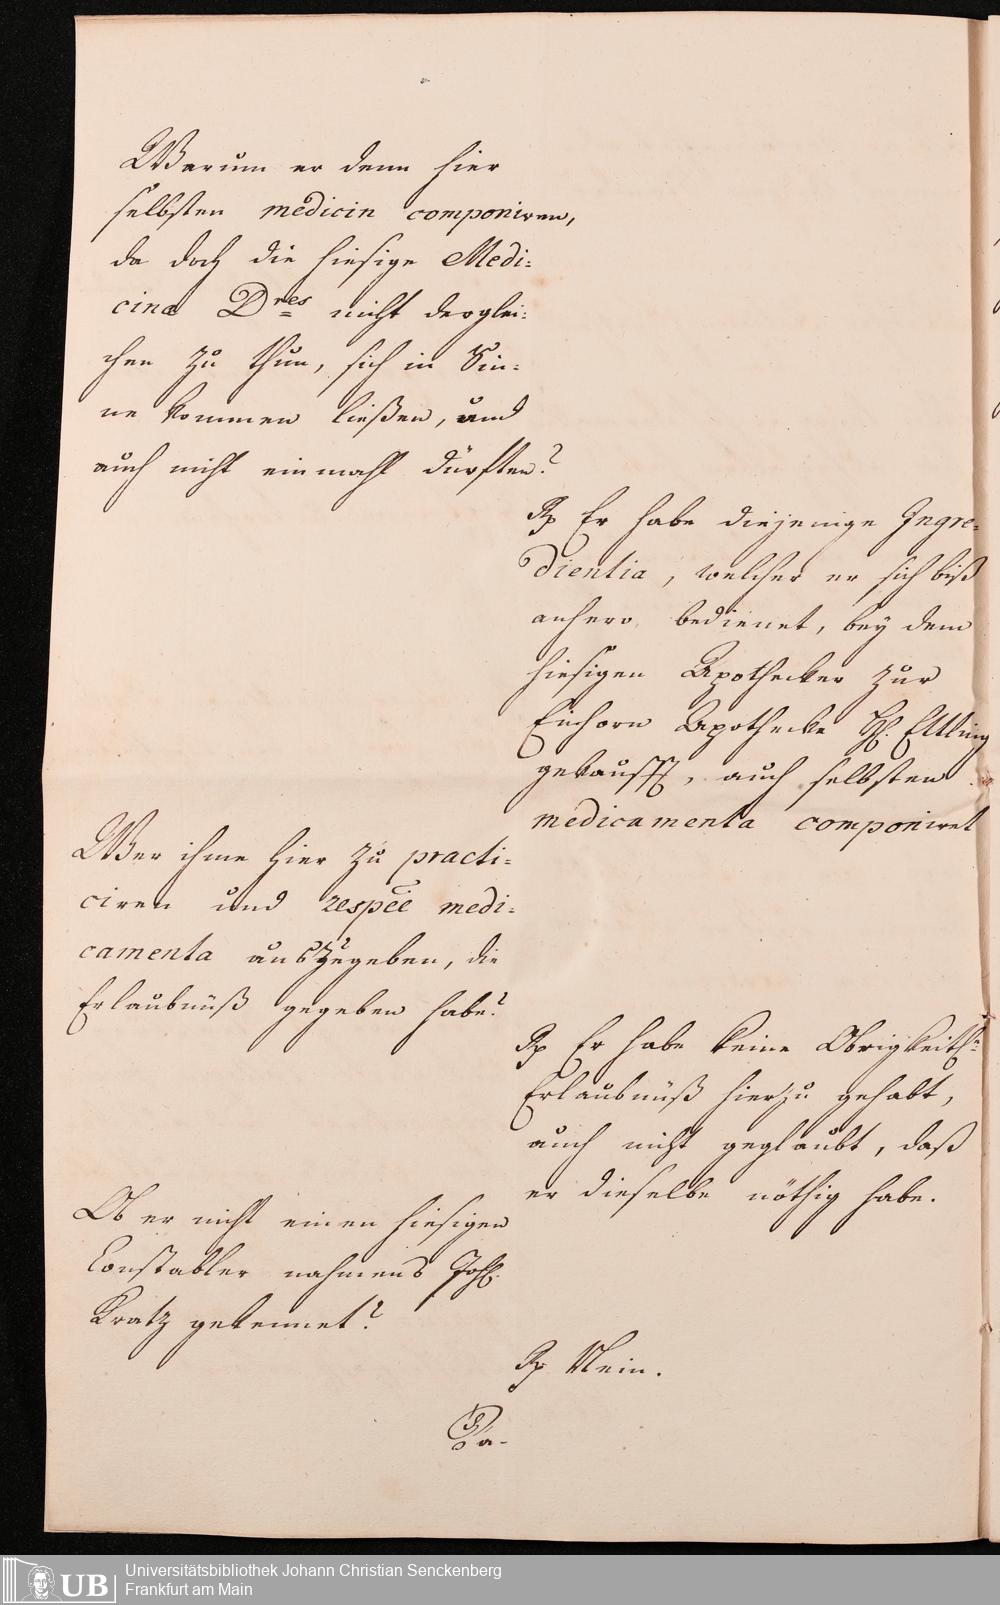 Warum er denn hier
selbsten medicin componiren,
da doch die hiesige Medi-
cinæ Dres nicht derglei-
chen zu thun, sich in Sin-
ne kommen ließen, und
auch nicht einmahl dürften?
Rp Er habe diejenige Ingre-
dientia, welcher er sich biß
anhero bedienet, bey dem
hiesigen Apothecker zur
Einhorn Apothecke H. Ettling
gekaufft, auch selbsten
medicamenta componiret
Wer ihme hier zu practi-
ciren und respée medi-
camenta auszugeben, die
Erlaubnüß gegeben habe?
Rp Er habe keine Obrigkeitl.
Erlaubnüß hierzu gehabt,
auch nicht geglaubt, daß
er dieselbe nöthig habe.
Ob er nicht einen hiesigen
Constabler nahmens Joh.
Kratz gekennet?
Rp Nein.
Universitätsbibliothek Johann Christian Senckenberg
Frankfurt am Main
UB